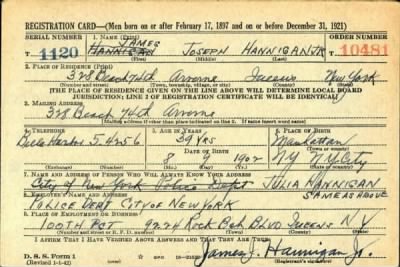 REGISTRATION CARD—(Men born on or after February 17, 1897 and on or before December 31, 1921)
SERIAL NUMBER 1. NAME (Print) ORDER NUMBER
JAMES
T 1120 HANNIGAN JOSEPH HANNIGAN JR 10481
(First) (Middle) (Last)
2. PLACE OF RESIDENCE (Print)
328 Beach 74th Arverne Queens New York
(Number and street) (Town, township, village, or city) (County) (State)
[THE PLACE OF RESIDENCE GIVEN ON THE LINE ABOVE WILL DETERMINE LOCAL BOARD
JURISDICTION; LINE 2 OF REGISTRATION CERTIFICATE WILL BE IDENTICAL]
3. MAILING ADDRESS
328 Beach 74th Arverne
[Mailing address if other than place indicated on line 2. If same insert word same]
4. TELEPHONE 5. AGE IN YEARS 6. PLACE OF BIRTH
39 Yrs Manhattan
Belle Harbor 5.4256 DATE OF BIRTH (Town or county)
8 9 1902 NY NY City
(Exchange) (Number) (Mo.) (Day) (Yr.) (State or country)
7. NAME AND ADDRESS OF PERSON WHO WILL ALWAYS KNOW YOUR ADDRESS
City of New York Police Dept JULIA HANNIGAN
SAME AS ABOVE
8. EMPLOYER'S NAME AND ADDRESS
POLICE DEPT CITY OF NEW YORK
9. PLACE OF EMPLOYMENT OR BUSINESS
100TH PCT 92.24 Rock Bch BLVD QUEENS N.Y
(Number and street or R. F. D. number) (Town) (County) (State)
I AFFIRM THAT I HAVE VERIFIED ABOVE ANSWERS AND THAT THEY ARE TRUE.
D. S. S. Form 1
(Revised 1-1-42) James J. Hannigan Jr.
(Registrant's signature)